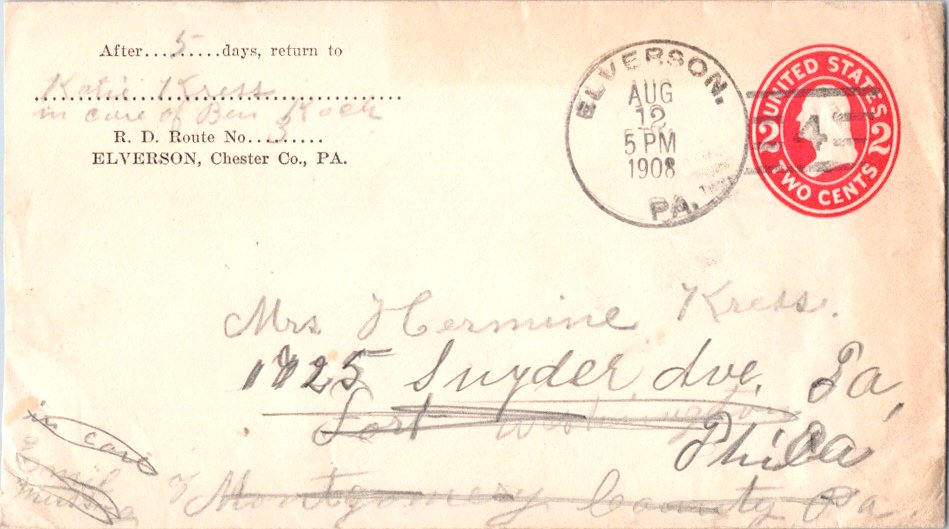 After.....5.......days, return to
Katie Kress
in care of Ben Koch
R. D. Route No...3......
ELVERSON, Chester Co., PA.
ELVERSON,
AUG
12
5 PM
1908
PA.
UNITED STATES
2 2
TWO CENTS
4
Mrs Hermine Kress.
1725 Snyder Ave. Pa,
Fort Washington
Phila
in care
Emil
Montgomery County Pa.